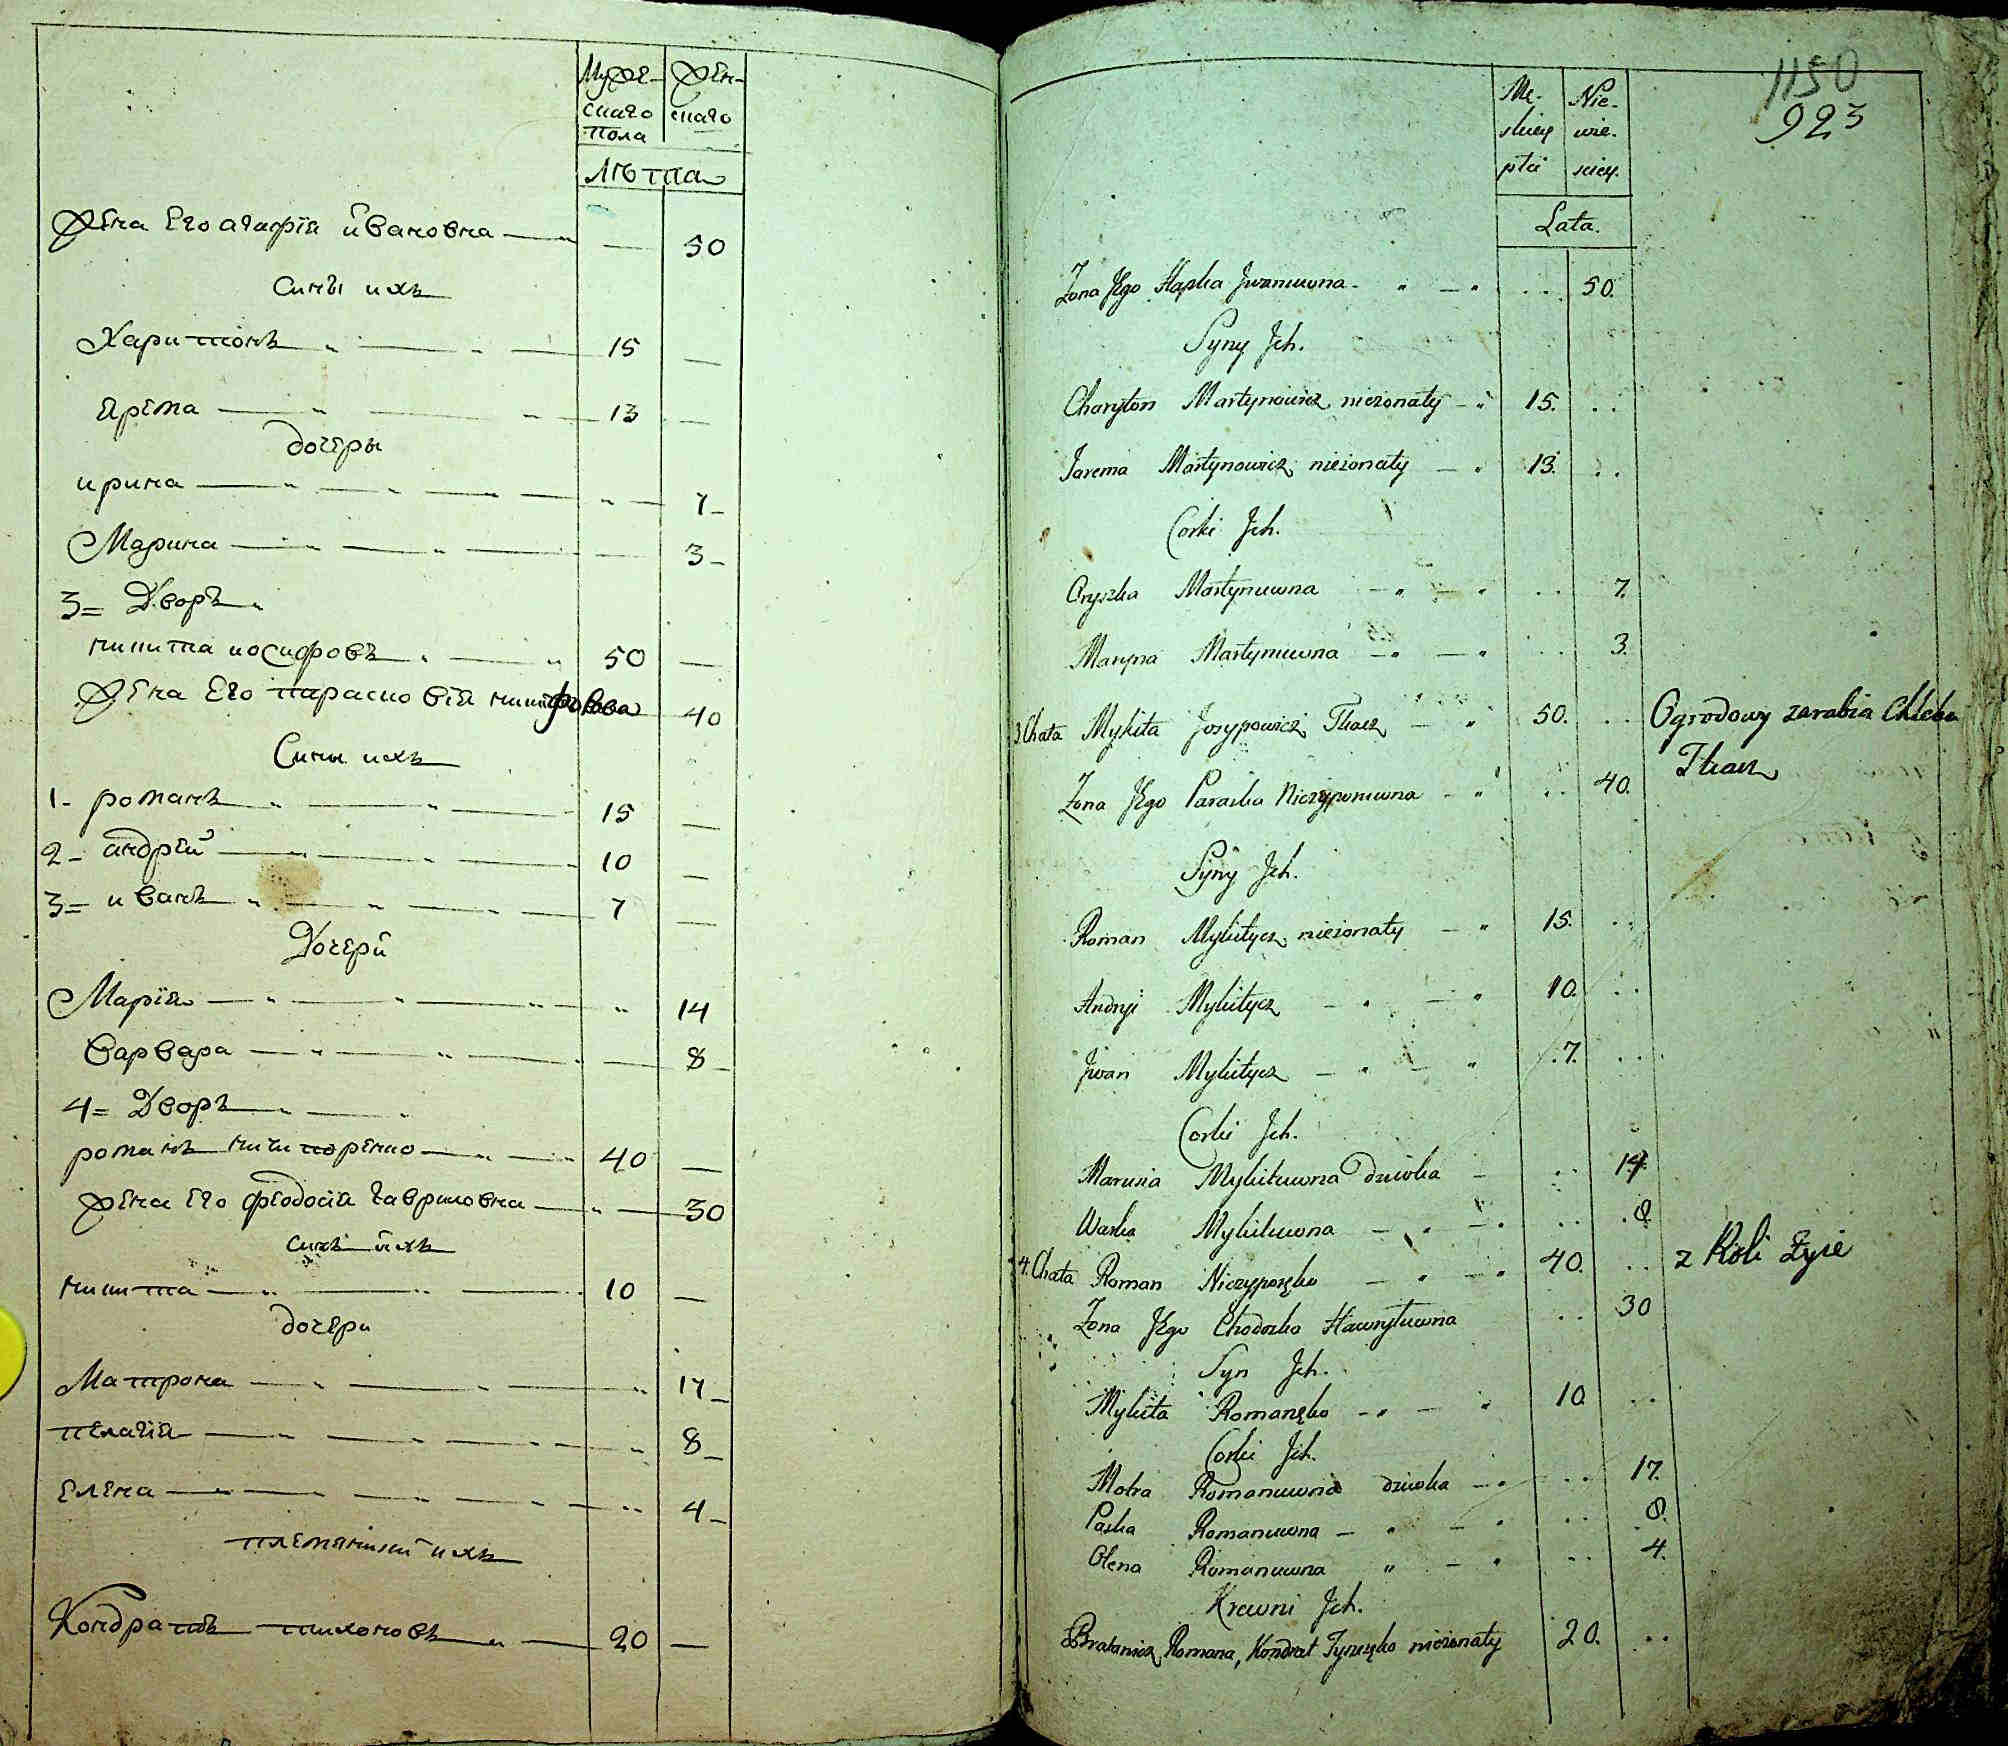 Муже- Жен-
скаго скаго
пола
Лѣта
Жена Его агафія ивановна — — 50
Сины ихъ
Харитонъ — 15 —
ярема — 13 —
дочеры
ирина — — 7
Марина — — 3
3= Дворъ
никита иосифовъ — 50 —
Жена Его парасковія — 40
Сины ихъ
1- романъ — 15 —
2- андрій — 10 —
3= иванъ — 7 —
Дочери
Марія — 14
Варвара — 8
4= Дворъ
романъ ничипоренко — 40 —
жена Его феодосія гавриловна — 30
синъ ихъ
никита — 10 —
дочери
Матрона — 17
пелагія — 8
елена — 4
племянникй ихъ
Кондратъ тихоновъ — 20 —
1150
923
Mę- Nie-
skiey wie-
płci sciey.
Lata.
Zona Jego Hapka Jwanuwna - 50.
Syny Jch.
Charyton Martynowicz niezonaty - 15.
Jarema Martynowicz niezonaty - 13.
Corki Jch.
Oryszka Martynuwna - 7.
Maryna Martynuwna - 3.
3. Chata Mykita Josypowicz Tkacz - 50. Ogrodowy zarabia Chleba
Tkacz
Zona Jego Paraska Niczyporuwna - 40.
Syny Jch.
Roman Mykitycz niezonaty - 15.
Andryi Mykitycz - 10.
Jwan Mykitycz - 7.
Corki Jch.
Marusia Mykituwna Dziwka - 14.
Warka Mykituwna - 8.
4. Chata Roman Niczyporęko - 40. z Roli Zyie
Zona Jego Chodoska Hawryłuwna 30
Syn Jch.
Mykita Romanęko - 10
Corki Jch.
Motra Romanuwna dziwka - 17.
Paska Romanuwna - 8.
Olena Romanuwna - 4.
Krewni Jch.
Bratanicz Romana, Kondrat Tyszęko niezonaty 20.